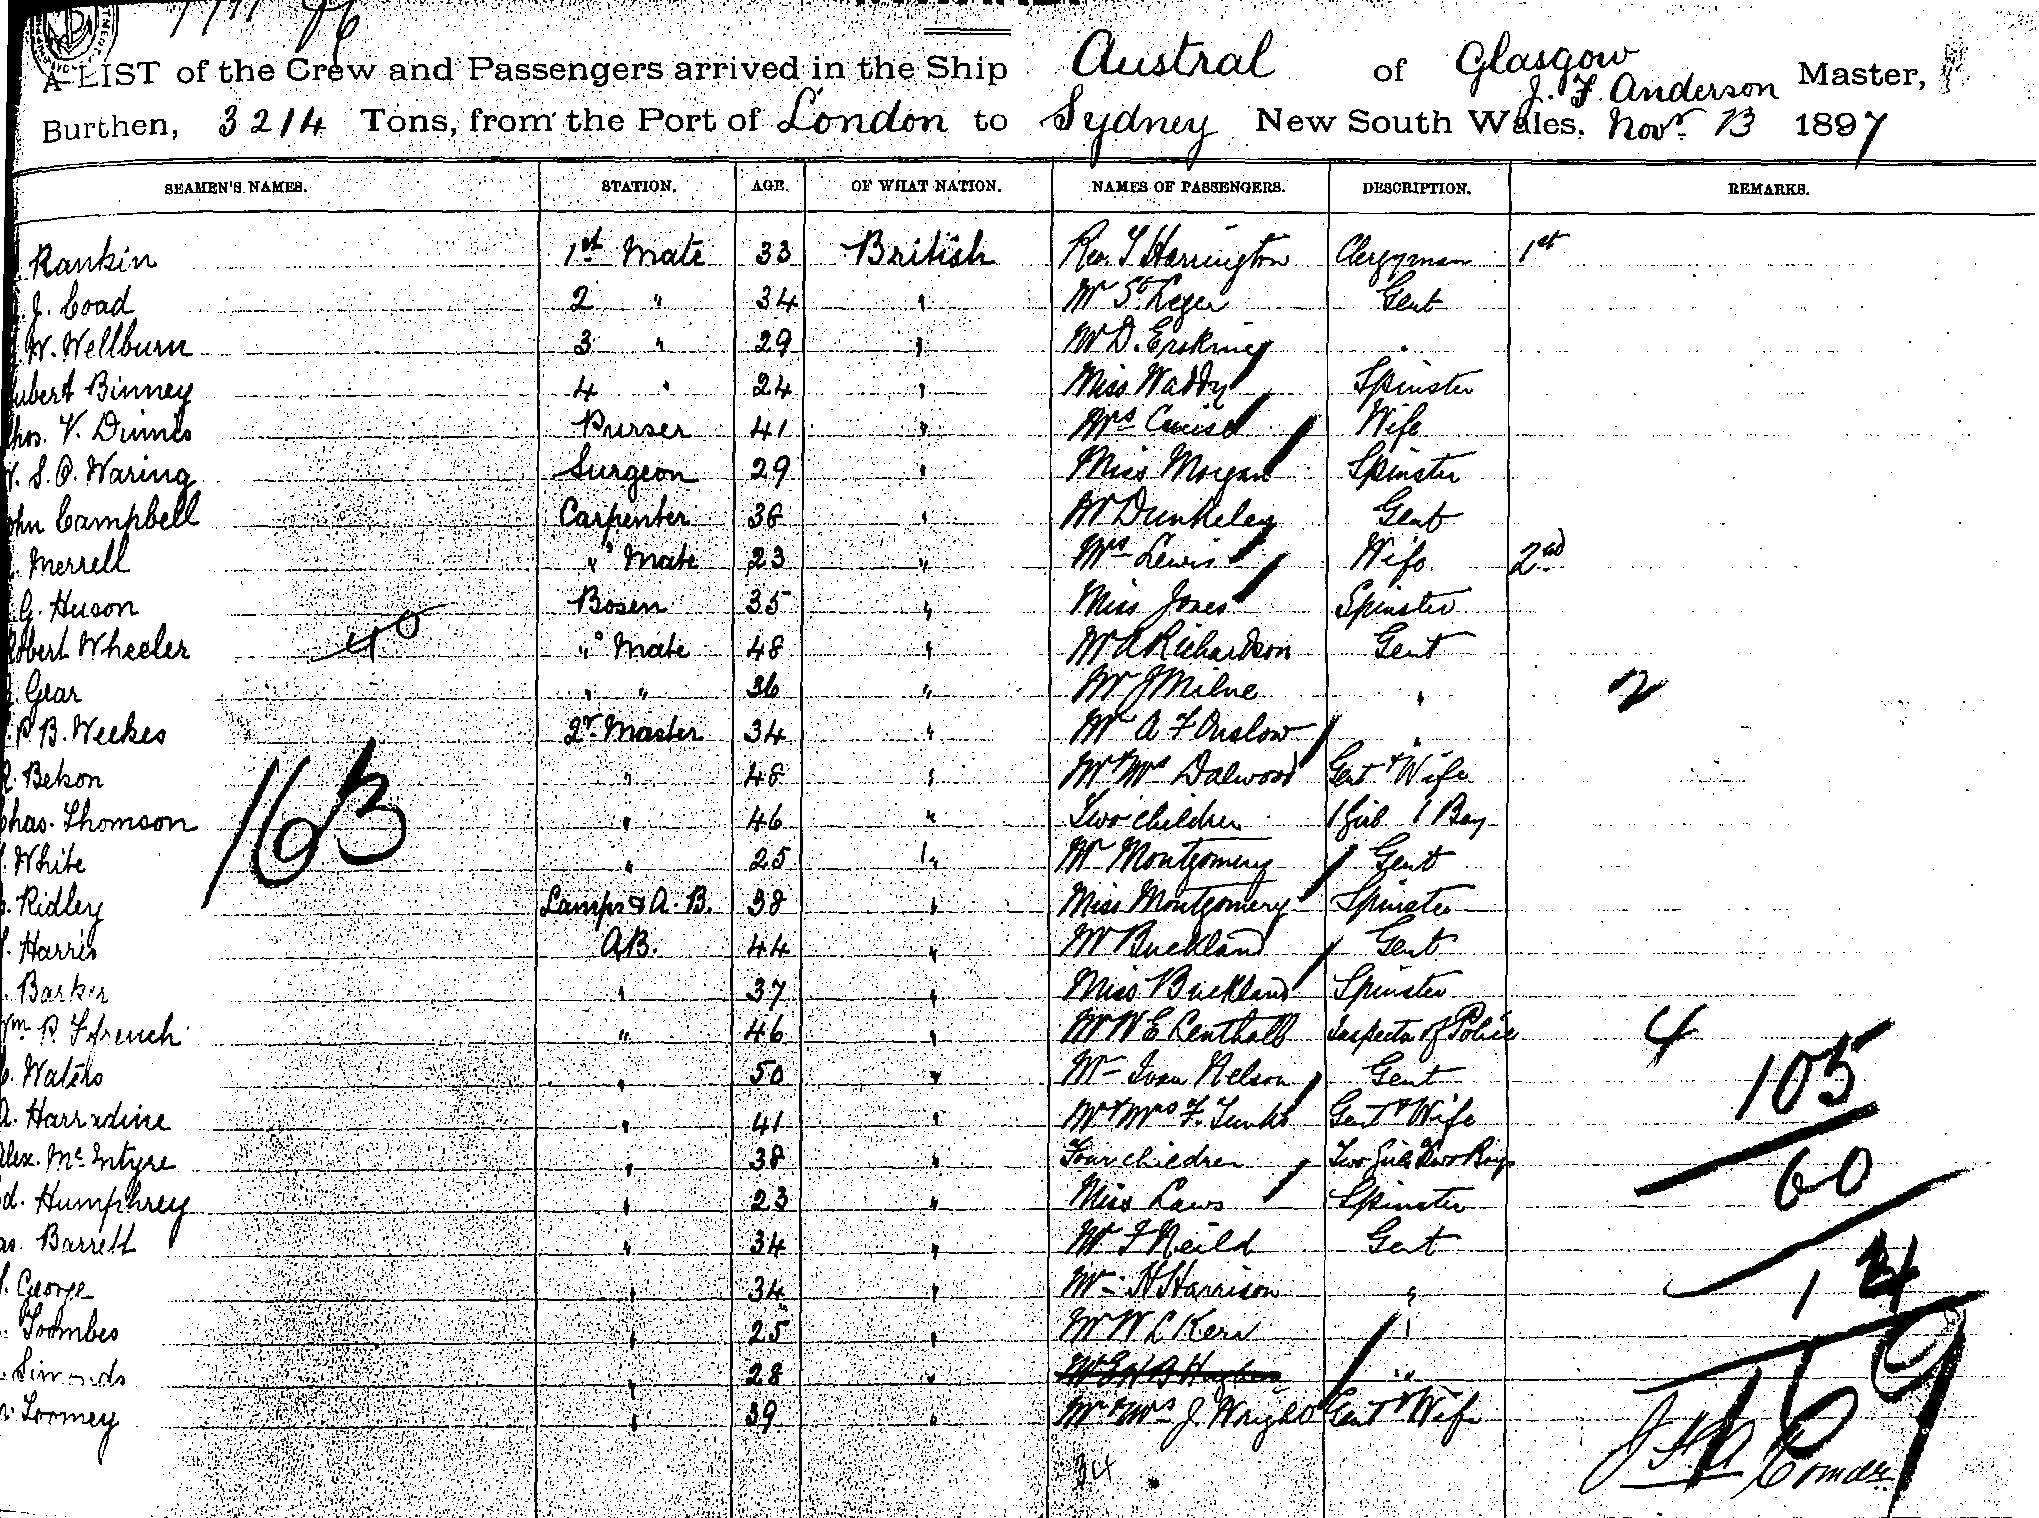 A LIST of the Crew and Passengers arrived in the Ship Austral of Glasgow J. F. Anderson Master,
Burthen, 3214 Tons, from the Port of London to Sydney New South Wales, Novr 13 1897
SEAMEN'S NAMES. STATION. AGE. OF WHAT NATION. NAMES OF PASSENGERS. DESCRIPTION. REMARKS.
Rankin 1st Mate 33 British Rev. T Harrington Clergyman 1st
J. Coad 2 " 34 " Mr St Leger Gent
W. Wellburn 3 " 29 " Mr D. Erskine "
ubert Binney 4 " 24 " Miss Waddy Spinster
hos. V. Dimes Purser 41 " Mrs Cruise Wife
S. P. Waring Surgeon 29 " Miss Morgan Spinster
ohn Campbell Carpenter 38 " Mr Dunkeley Gent
Merrell " Mate 23 " Mrs Lewis Wife 2nd
G. Huson Bosen 35 " Miss Jones Spinster
obert Wheeler 40 " Mate 48 " Mr A Richardson Gent
Gear " " 36 " Mr J Milne " 2
P B. Weekes Qr Master 34 " Mr A F Onslow "
R. Belson " 48 " Mr & Mrs Dalwood Gent & Wife
Chas. Thomson 163 " 46 " Two children 1 Girl 1 Boy
White " 25 " Mr Montgomery Gent
Ridley Lamps & A.B. 38 " Miss Montgomery Spinster
Harris A.B. 44 " Mr Buckland Gent
Barker " 37 " Miss Buckland Spinster
Wm P. Ffrench " 46 " Mr W E Lenthall Inspector of Police 4
Waters " 50 " Mr Ivan Nelson Gent 105
A. Harradine " 41 " Mr & Mrs F. Tunks Gent & Wife
Alex. McIntyre " 38 " Four children Two Girls Two Boys 60
d. Humphrey " 23 " Miss Laws Spinster
as. Barrett " 34 " Mr F Neild Gent
George " 34 " Mr H Harrison "
Toombes " 25 " Mr W L Kerr "
Simonds " 28 " "
Toomey 39 " Mr & Mrs J. Wright Gent & Wife 169
34